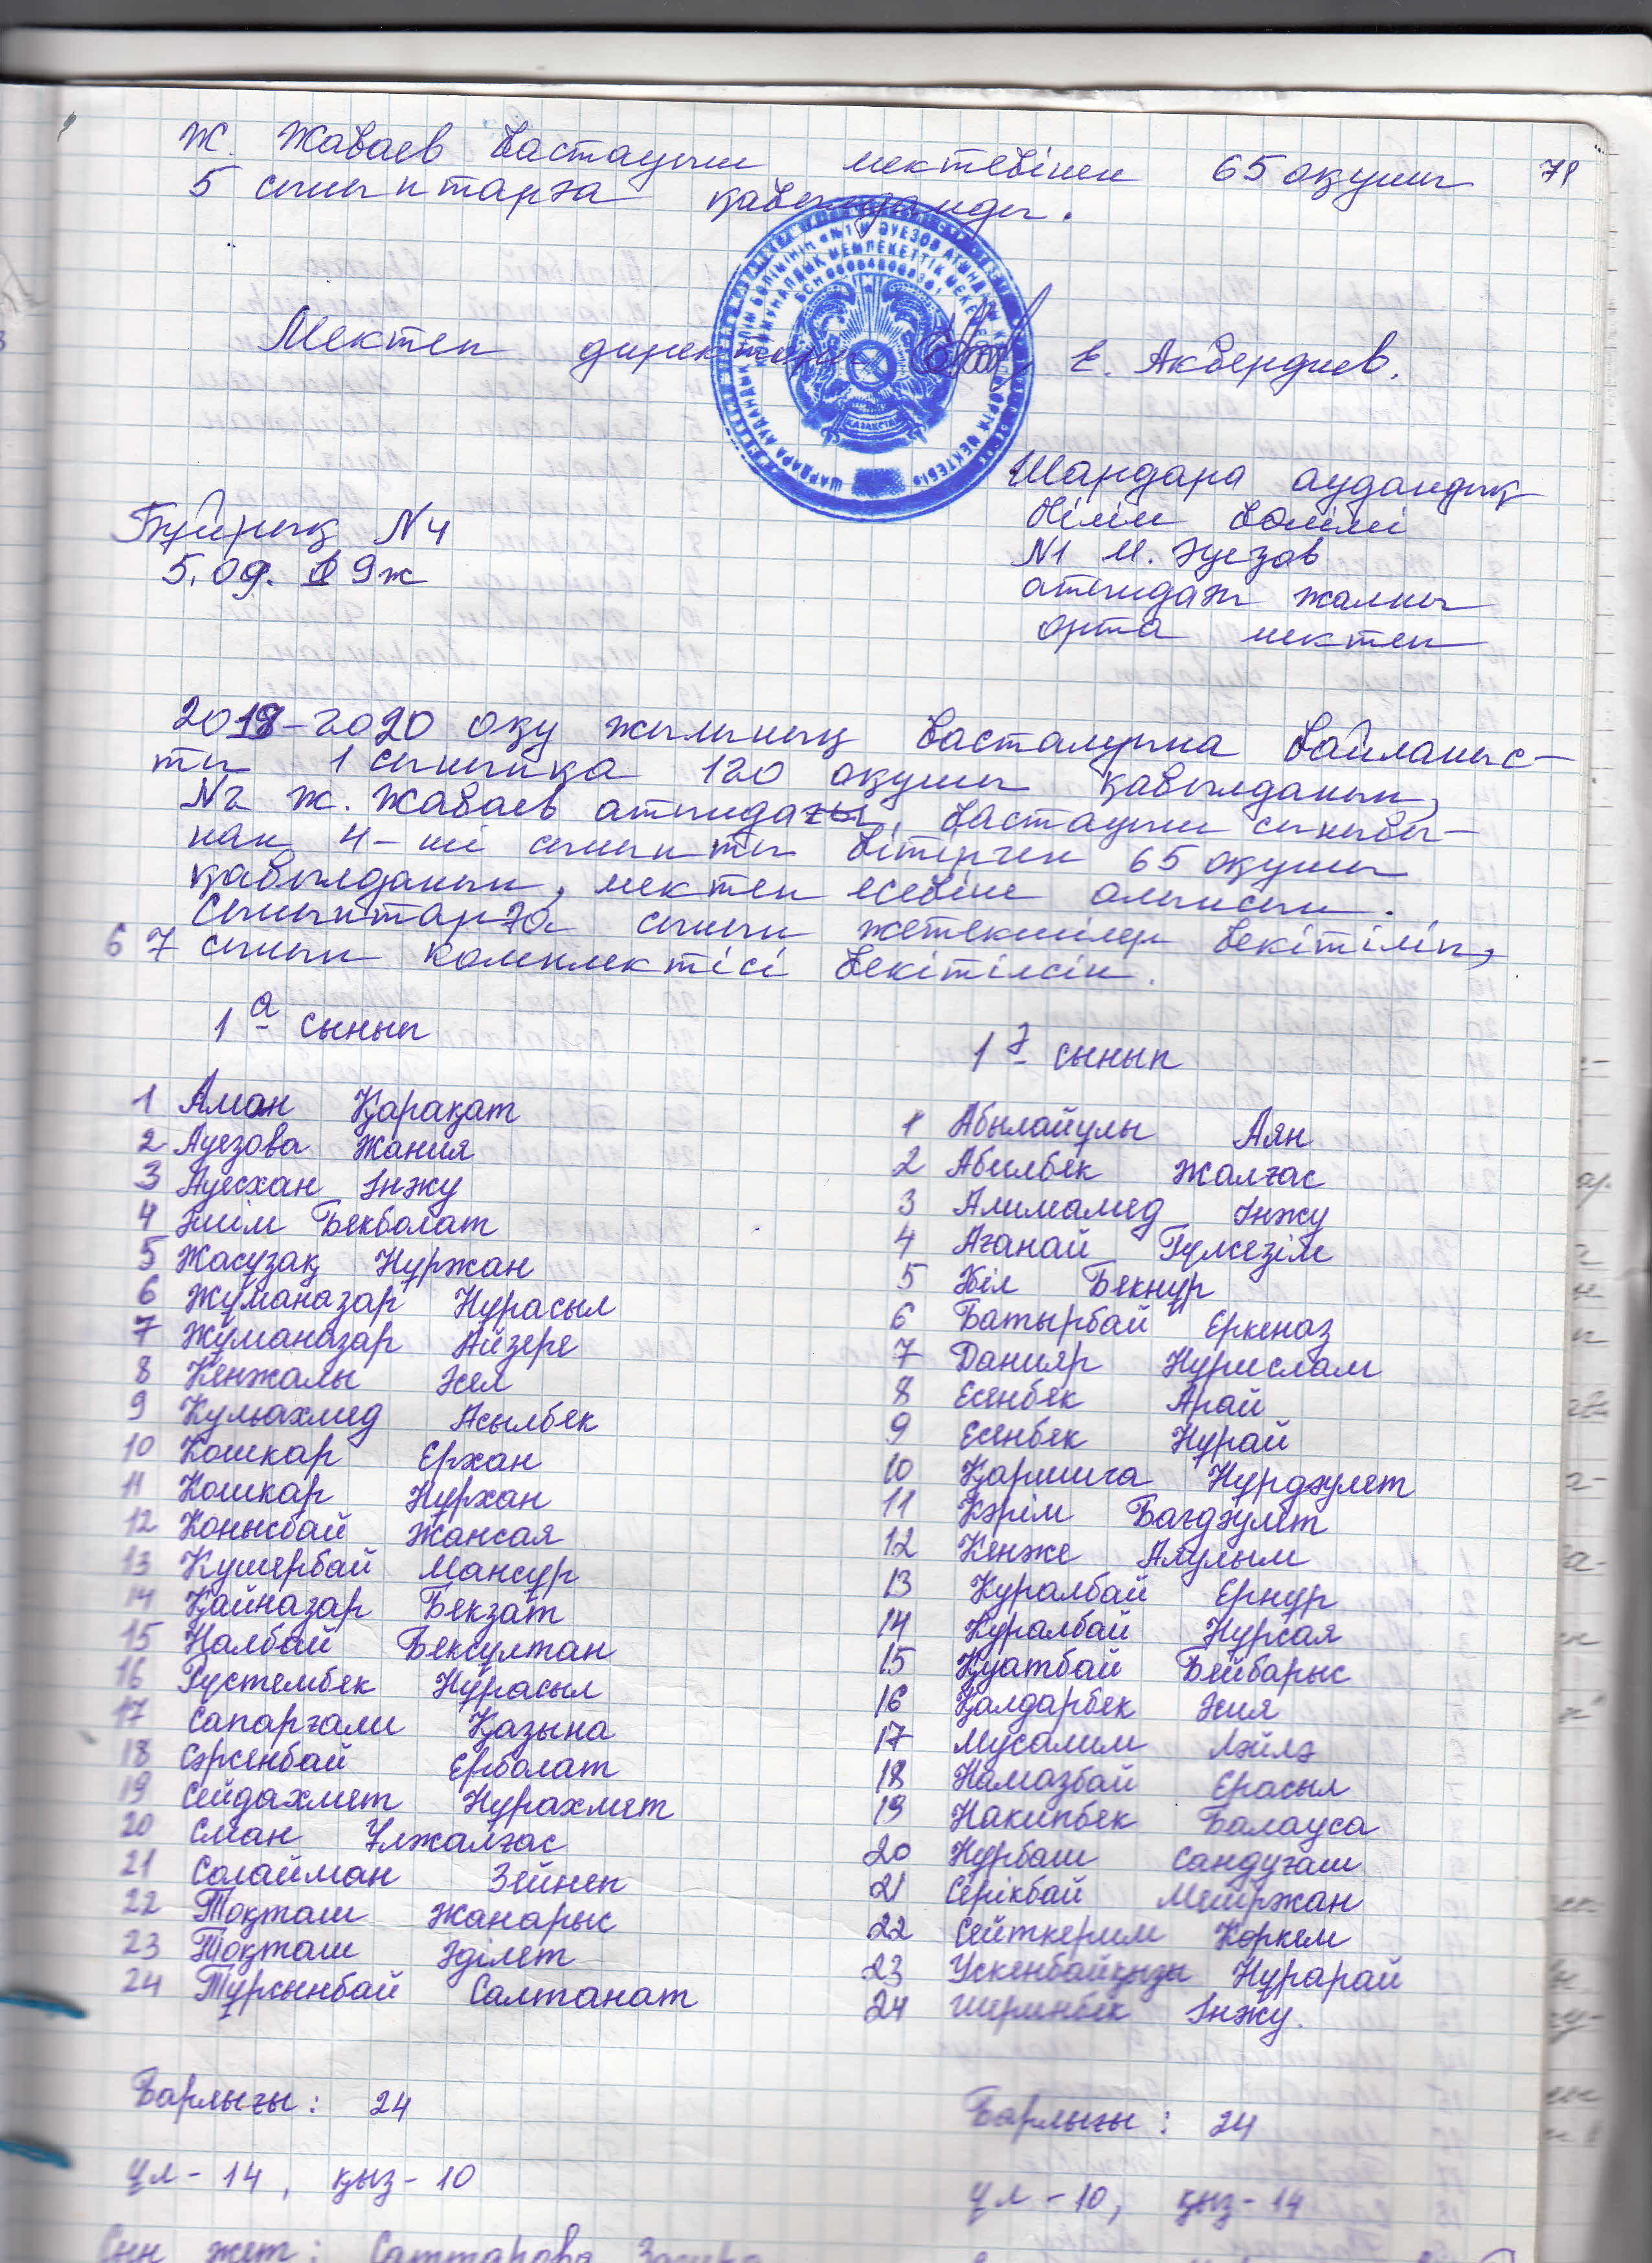 Ж. Жабаев бастауыш мектебінен 65 оқушы 71
5 сыныптарға қабылданды.
Мектеп директоры Е. Акбердиев.
Шардара аудандық
білім бөлімі
Бұйрық N4
N1 М. Әуезов
5.09. 19ж
атындағы жалпы
орта мектеп
2019-2020 оқу жылының басталуына байланыс-
ты 1 сыныпқа 120 оқушы қабылданып,
N2 Ж. Жабаев атындағы, бастауыш сыныбы-
нан 4-ші сыныпты бітірген 65 оқушы
қабылданып, мектеп есебіне алынсын.
Сыныптарға сынып жетекшілер бекітіліп,
67 сынып комплектісі бекітілсін.
1 а сынып
1 ә сынып
1 Аман Қарақат
2 Ауезова Жания
3 Ауесхан Інжу
4 Әшім Бекболат
5 Жасұзақ Нұржан
6 Жұманазар Нұрасыл
7 Жұманазар Айзере
8 Кенжалы Әсел
9 Кулыахмед Асылбек
10 Кошкар Ерхан
11 Кошкар Нұрхан
12 Конысбай Жансая
13 Кушербай Мансұр
14 Қайназар Бекзат
15 Налбай Бексұлтан
16 Рүстембек Нұрасыл
17 Сапарғали Қазына
18 Сәрсенбай Ерболат
19 Сейдахмет Нұрахмет
20 Сман Ұлжалғас
21 Солайман Зейнеп
22 Тоқташ Жанарыс
23 Тоқташ Әділет
24 Тұрсынбай Салтанат
Барлығы: 24
ұл-14, қыз-10
Сын жет: Саттарова
1 Абылайұлы Аян
2 Абилбек Жалғас
3 Алимамед Інжу
4 Ағанай Гүлсезім
5 Әбіл Бекнұр
6 Батырбай Еркеназ
7 Данияр Нұрислам
8 Есенбек Арай
9 Есенбек Нұрай
10 Қаршиға Нұрдәулет
11 Кәрім Бағдәулет
12 Кенже Алұлым
13 Куралбай Ернұр
14 Куралбай Нұрсая
15 Қуатбай Бейбарыс
16 Қалдарбек Әсия
17 Мусалим Ләйлә
18 Намазбай Ерасыл
19 Накипбек Балауса
20 Нұрбаш Сандуғаш
21 Серікбай Мейржан
22 Сейткерим Көркем
23 Ускенбайқызы Нұрарай
24 Ширинбек Інжу.
Барлығы: 24
ұл-10, қыз-14